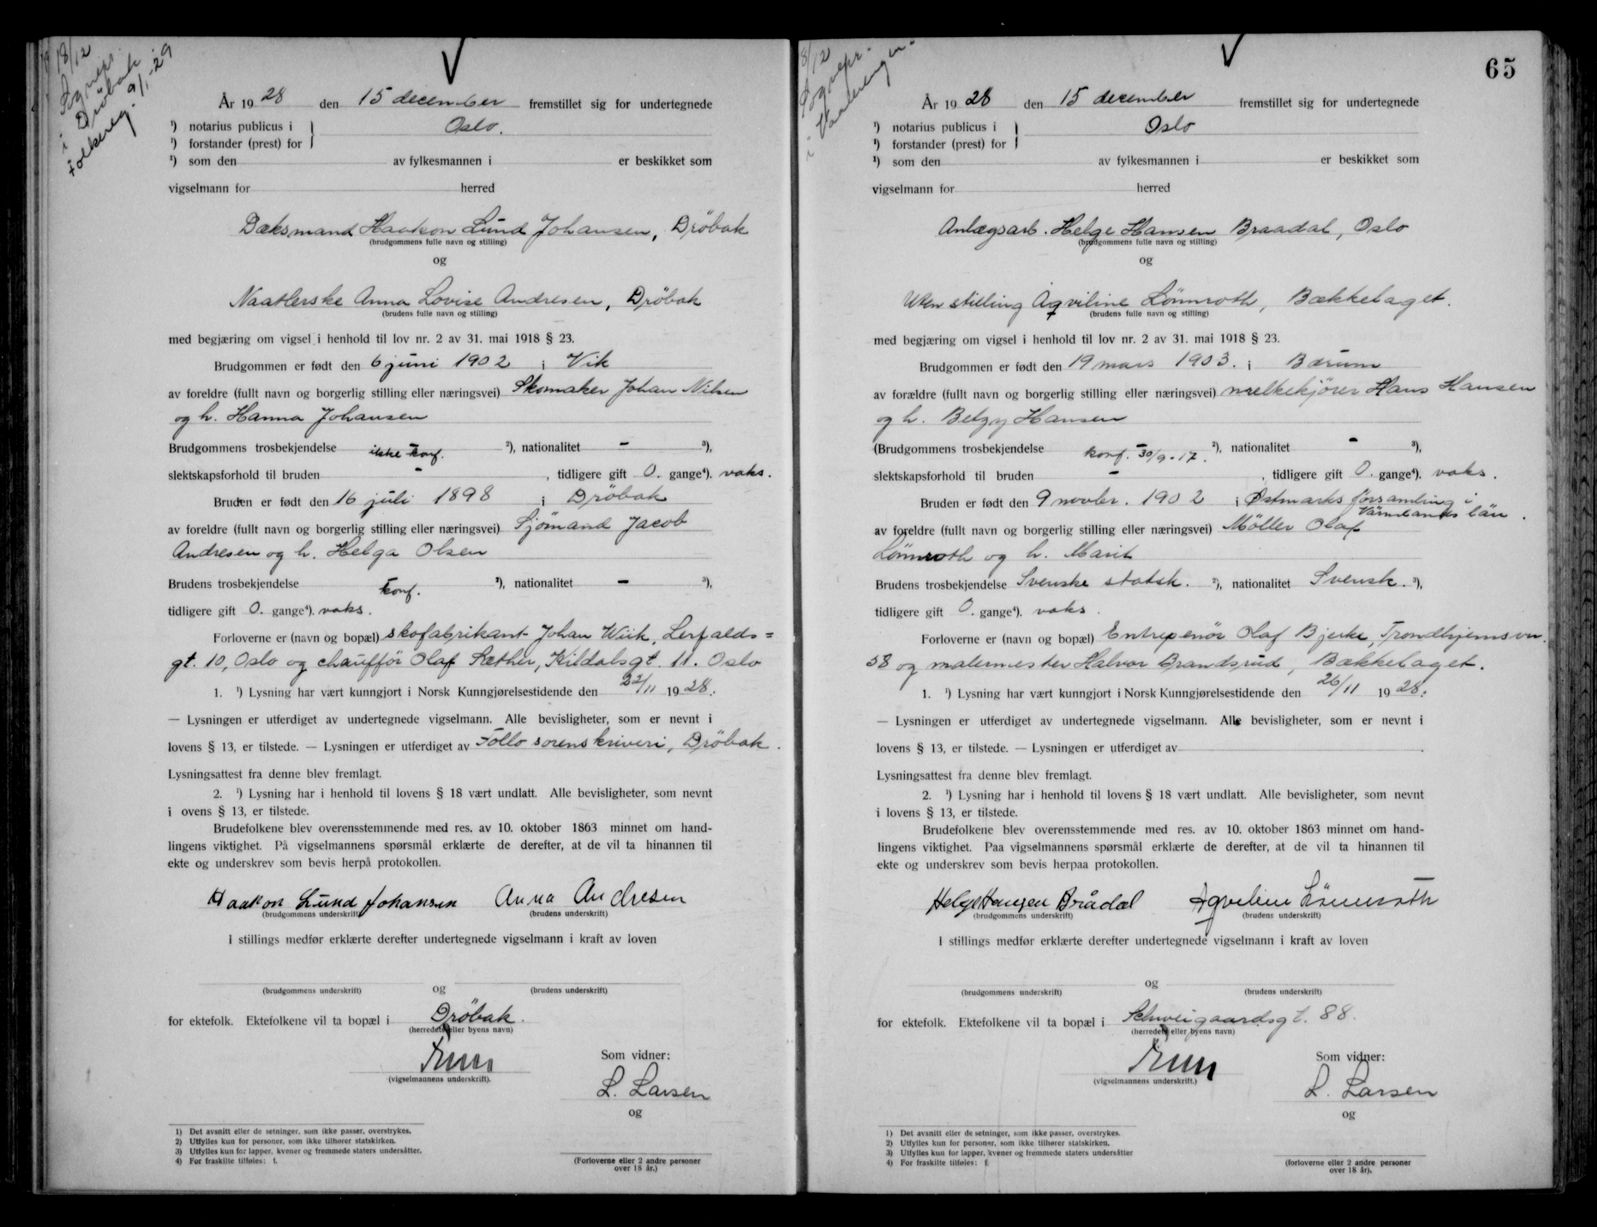 18/12
Sognepr.
i Dröbak
folkereg. 9/1-29
År 1928 den 15 december fremstillet sig for undertegnede
¹) notarius publicus i Oslo.
¹) forstander (prest) for
¹) som den av fylkesmannen i er beskikket som
vigselmann for herred
Dæksmand Haakon Lund Johansen, Dröbak
(brudgommens fulle navn og stilling)
og
Naatlerske Anna Lovise Andresen, Dröbak
(brudens fulle navn og stilling)
med begjæring om vigsel i henhold til lov nr. 2 av 31. mai 1918 § 23.
Brudgommen er født den 6 juni 1902 i Vik
av foreldre (fullt navn og borgerlig stilling eller næringsvei) Skomaker Johan Nilsen
og h. Hanna Johansen
Brudgommens trosbekjendelse ikke konf. ²), nationalitet - ³),
slektskapsforhold til bruden - , tidligere gift 0. gange⁴). vaks.
Bruden er født den 16 juli 1898 i Dröbak
av foreldre (fullt navn og borgerlig stilling eller næringsvei) Sjömand Jacob
Andresen og h. Helga Olsen
Brudens trosbekjendelse konf. ²), nationalitet - ³),
tidligere gift 0. gange⁴). vaks.
Forloverne er (navn og bopæl) skofabrikant Johan Wiik, Lerfalds=
gt. 10, Oslo og chaufför Olaf Sæther, Kildalsgt. 11. Oslo
1. ¹) Lysning har vært kunngjort i Norsk Kunngjørelsestidende den 22/11 1928.:
— Lysningen er utferdiget av undertegnede vigselmann. Alle bevisligheter, som er nevnt i
lovens § 13, er tilstede. — Lysningen er utferdiget av Follo sorenskriveri, Dröbak.
Lysningsattest fra denne blev fremlagt.
2. ¹) Lysning har i henhold til lovens § 18 vært undlatt. Alle bevisligheter, som nevnt
i ovens § 13, er tilstede.
Brudefolkene blev overensstemmende med res. av 10. oktober 1863 minnet om hand-
lingens viktighet. På vigselmannens spørsmål erklærte de derefter, at de vil ta hinannen til
ekte og underskrev som bevis herpå protokollen.
Haakon Lund Johansen Anna Andresen
(brudgommens underskrift) (brudens underskrift)
I stillings medfør erklærte derefter undertegnede vigselmann i kraft av loven
og
(brudgommens underskrift) (brudens underskrift)
for ektefolk. Ektefolkene vil ta bopæl i Dröbak.
(herredets eller byens navn)
Som vidner:
(vigselmannens underskrift).
L. Larsen
og
1) Det avsnitt eller de setninger, som ikke passer, overstrykes.
2) Utfylles kun for personer, som ikke tilhører statskirken.
3) Utfylles kun for lapper, kvener og fremmede staters undersåtter.
4) For fraskilte tilføies: f.
(Forloverne eller 2 andre personer
over 18 år.)
65
18/12
Sognepr.
i Vaalerengen.
År 1928 den 15 december fremstillet sig for undertegnede
¹) notarius publicus i Oslo
¹) forstander (prest) for
¹) som den av fylkesmannen i er beskikket som
vigselmann for herred
Anlægsarb. Helge Hansen Braadal, Oslo
(brudgommens fulle navn og stilling)
og
Uten stilling Aqviline Lönnroth, Bækkelaget.
(brudens fulle navn og stilling)
med begjæring om vigsel i henhold til lov nr. 2 av 31. mai 1918 § 23.
Brudgommen er født den 19 mars 1903. i Bærum
av forældre (fullt navn og borgerlig stilling eller næringsvei) melkekjörer Hans Hansen
og h. Betzy Hansen
(Brudgommens trosbekjendelse konf. 30/9-17. ²), nationalitet - ³),
slektskapsforhold til bruden - , tidligere gift 0. gange⁴). vaks.
Bruden er født den 9 novbr. 1902 i Østmarks församling i
Värmlands län.
av foreldre (fullt navn og borgerlig stilling eller næringsvei) Møller Olaf
Lönnroth og h. Marit
Brudens trosbekjendelse Svenske statsk. ²), nationalitet Svensk. ³),
tidligere gift 0. gange⁴). vaks.
Forloverne er (navn og bopæl) Entrepenör Olaf Bjerke, Trondhjemsvn.
58 og malermester Halvor Brandsrud, Bækkelaget.
1. ¹) Lysning har vært kunngjort i Norsk Kunngjørelsestidende den 26/11 1928.:
— Lysningen er utferdiget av undertegnede vigselmann. Alle bevisligheter, som er nevnt i
lovens § 13, er tilstede. — Lysningen er utferdiget av .
Lysningsattest fra denne blev fremlagt.
2. ¹) Lysning har i henhold til lovens § 18 vært undlatt. Alle bevisligheter, som nevnt
i lovens § 13, er tilstede.
Brudefolkene blev overensstemmende med res. av 10. oktober 1863 minnet om hand-
lingens viktighet. Paa vigselmannens spørsmål erklærte de derefter, at de vil ta hinannen til
ekte og underskrev som bevis herpaa protokollen.
Helge Hansen Brådal Aqveline Lönnroth
(brudgommens underskrift) (brudens underskrift)
I stillings medfør erklærte derefter undertegnede vigselmann i kraft av loven
og
(brudgommens underskrift) (brudens underskrift)
for ektefolk. Ektefolkene vil ta bopæl i Schweigaardsgt. 88.
(herredets eller byens navn)
Som vidner:
(vigselmannens underskrift.)
L. Larsen
og
1) Det avsnitt eller de setninger, som ikke passer, overstrykes.
2) Utfylles kun for personer, som ikke tilhører statskirken.
3) Utfylles kun for lapper, kvener og fremmede staters undersåtter
4) For fraskilte tilføies: f.
(forloverne eller 2 andre personer
over 18 år).